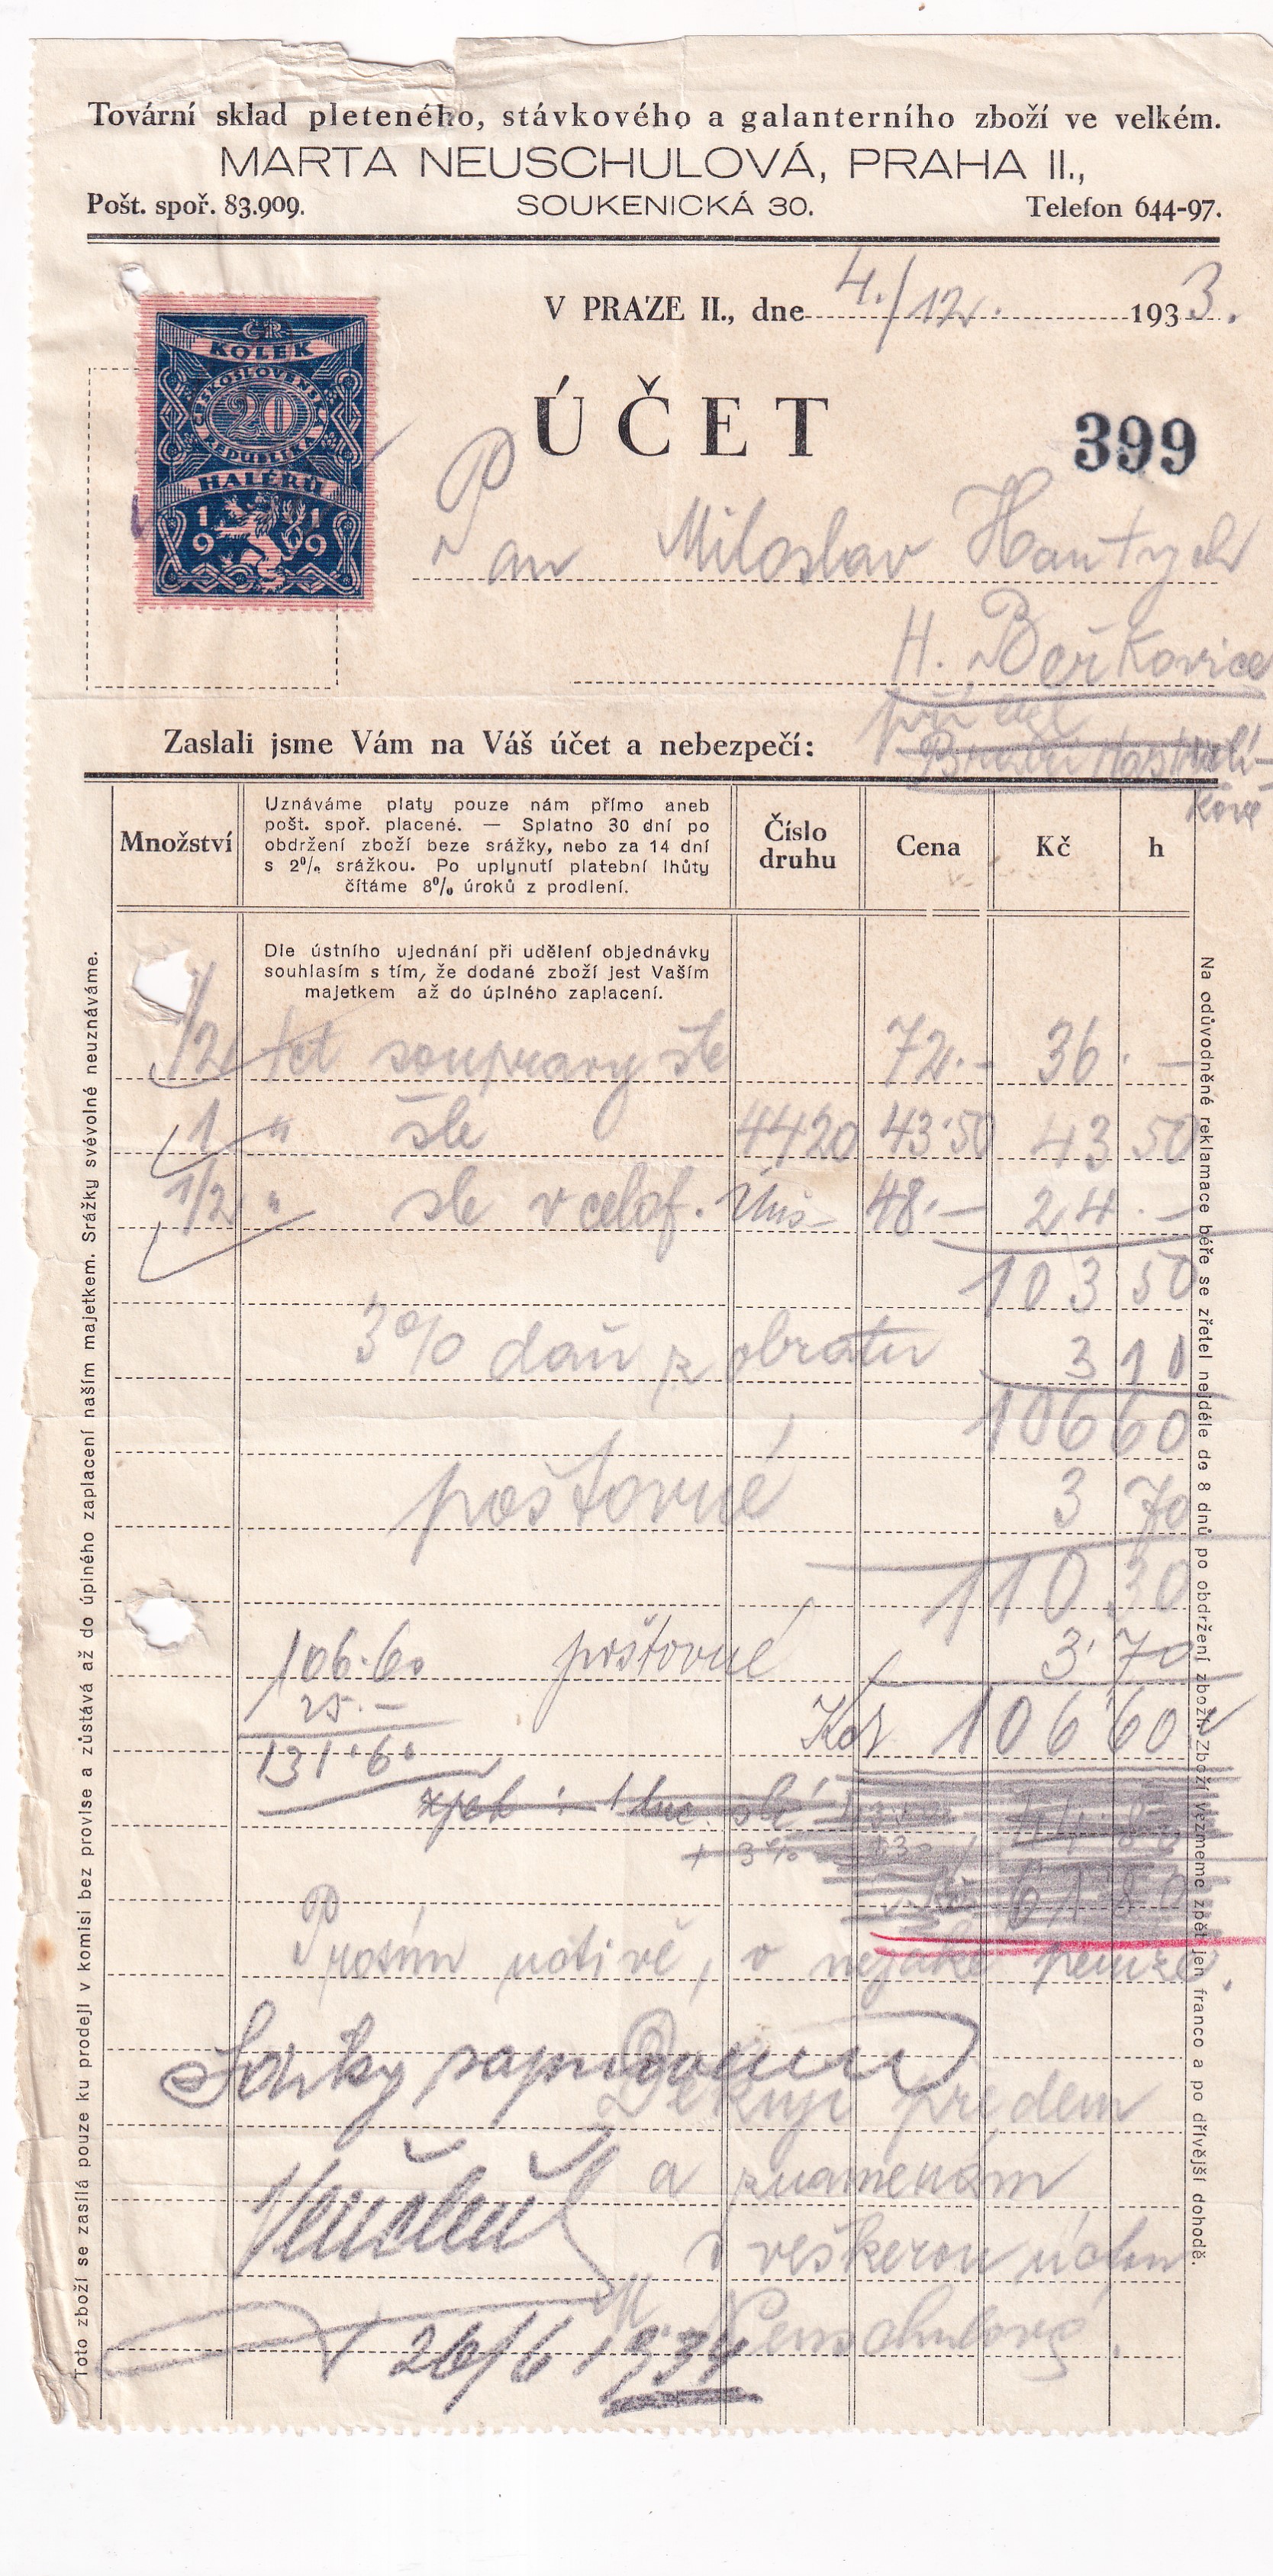 Tovární sklad pleteného, stávkového a galanterního zboží ve velkém.
MARTA NEUSCHULOVÁ, PRAHA II.,
Pošt. spoř. 83.909. SOUKENICKÁ 30. Telefon 644-97.
V PRAZE II., dne 4./12. 1933.
ČR
KOLEK
ČESKOSLOVENSKÁ
20
REPUBLIKA
HALÉŘŮ
1919
ÚČET
399
Pan Miloslav Hantych
H. Beřkovice
při
Zaslali jsme Vám na Váš účet a nebezpečí:
Množství
Uznáváme platy pouze nám přímo aneb
pošt. spoř. placené. — Splatno 30 dní po
obdržení zboží beze srážky, nebo za 14 dní
s 2% srážkou. Po uplynutí platební lhůty
čítáme 8% úroků z prodlení.
Číslo
druhu
Cena
Kč
h
Dle ústního ujednání při udělení objednávky
souhlasím s tím, že dodané zboží jest Vaším
majetkem až do úplného zaplacení.
1/2 tct soupravy šle 72.- 36.-
1 " šle 4420 43·50 43 50
1/2 " šle v celof. 48.- 24.-
103 50
3% daň z obratu 3 10
106 60
poštovné 3 70
110 30
106·60 poštovné 3·70
25.-
Kč 106 60
131·60
61 80
Prosím uctivě, o nějaké peníze.
Děkuji předem
a znamenám
v veškerou úctou
M Neuschulová.
26/6 1934
Toto zboží se zasílá pouze ku prodeji v komisi bez provise a zůstává až do úplného zaplacení naším majetkem. Srážky svévolné neuznáváme.
Na odůvodněné reklamace béře se zřetel nejdéle do 8 dnů po obdržení zboží. Zboží vezmeme zpět jen franco a po dřívější dohodě.